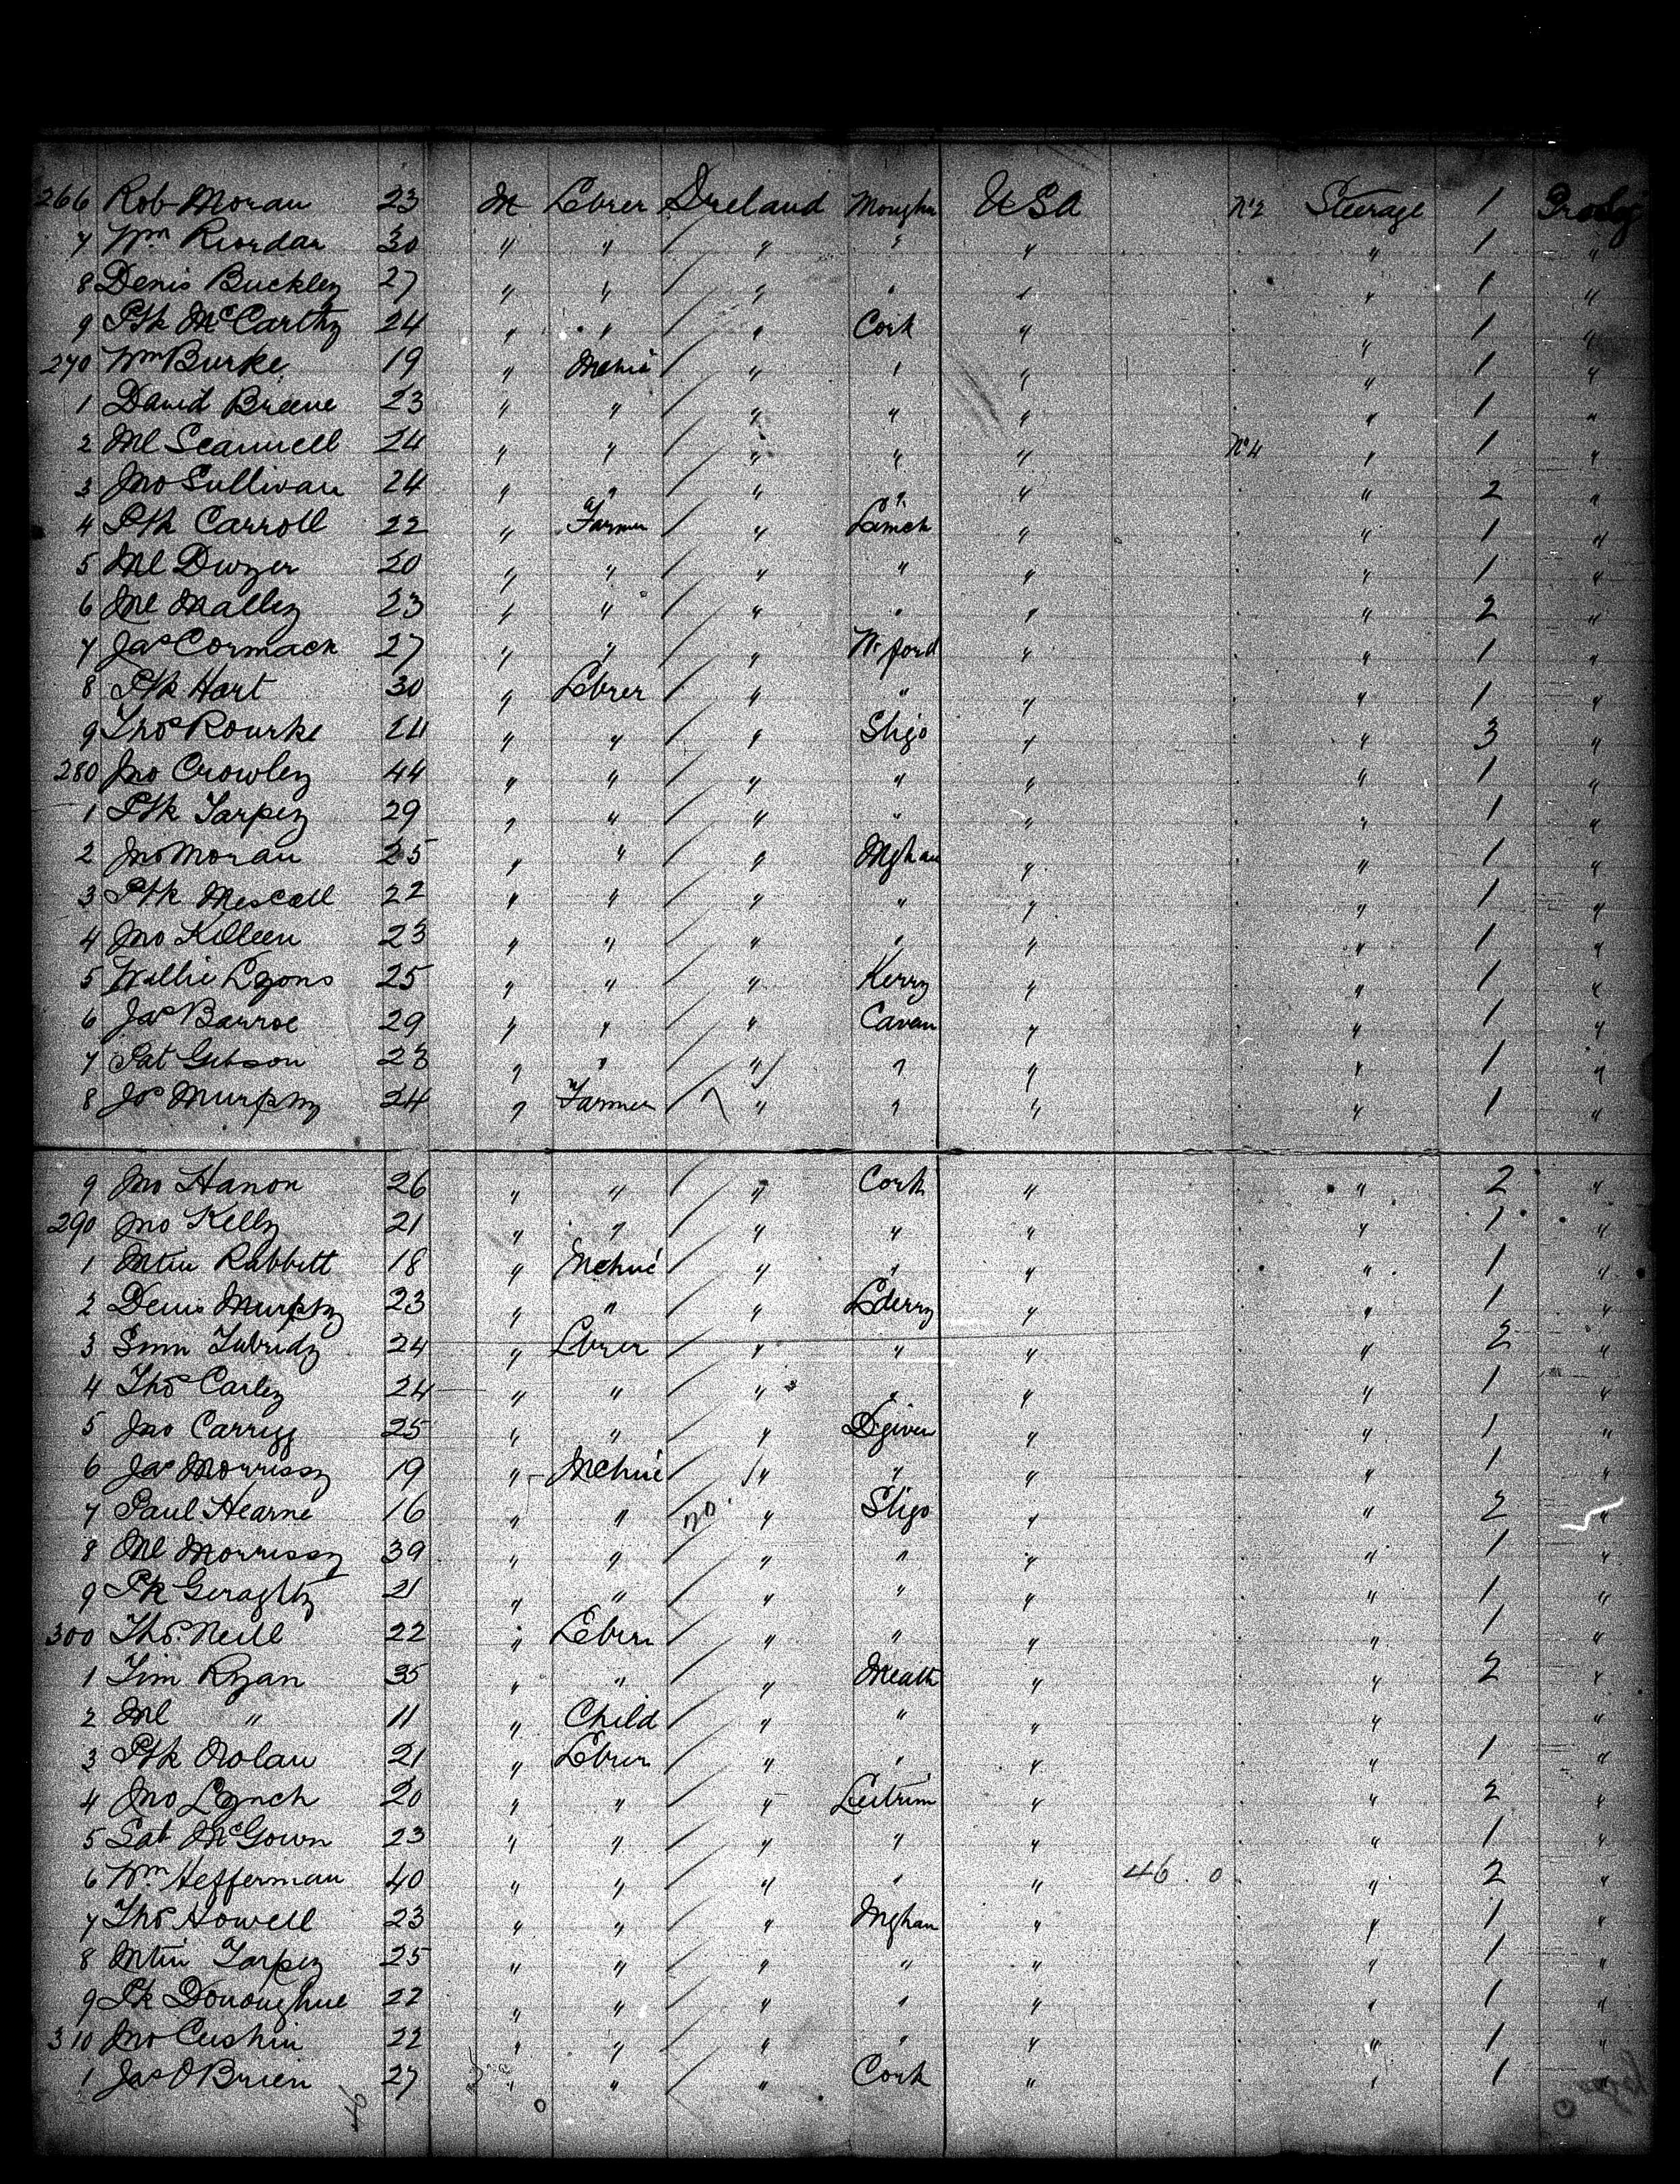 266 Rob Moran 23 M Lbrer Ireland Moughn USA No 2 Steerage 1
7 Wm Riordan 30 " " " " " " 1 "
8 Denis Buckley 27 " " " " " " 1 "
9 Ptk McCarthy 24 " " " Cork " " 1 "
270 Wm Burke 19 " Mchnic " " " " 1 "
1 David Breene 23 " " " " " " 1 "
2 Ml Scannell 24 " " " " " No 4 " 1 "
3 Jno Sullivan 24 " " " " " " 2 "
4 Ptk Carroll 22 " Farmer " Limck " " 1 "
5 Ml Dwyer 20 " " " " " " 1 "
6 Ml Malley 23 " " " " " " 2 "
7 Jas Cormack 27 " " " W.ford " " 1 "
8 Ptk Hart 30 " Lbrer " " " " 1 "
9 Thos Rourke 24 " " " Sligo " " 3 "
280 Jno Crowley 44 " " " " " " 1 "
1 Ptk Tarpey 29 " " " " " " 1 "
2 Jno Moran 25 " " " Mghan " " 1 "
3 Ptk Mescall 22 " " " " " " 1 "
4 Jno Killeen 23 " " " " " " 1 "
5 Willie Lyons 25 " " " Kerry " " 1 "
6 Jas Barroe 29 " " " Cavan " " 1 "
7 Pat Gibson 23 " " " " " " 1 "
8 Jos Murphy 24 " Farmer " " " " 1 "
9 Jno Hanon 26 " " " Cork " " 2 "
290 Jno Kelly 21 " " " " " " 1 "
1 Mtin Rabbitt 18 " Mchnic " " " " 1 "
2 Denis Murphy 23 " " " Lderry " " 1 "
3 Smn Tubridy 24 " Lbrer " " " " 2 "
4 Thos Carley 24 " " " " " " 1 "
5 Jno Carrigg 25 " " " Dgiven " " 1 "
6 Jas Morrissy 19 " Mchnic " " " " 1 "
7 Paul Hearne 16 " " no " Sligo " " 2 "
8 Ml Morrissy 39 " " " " " " 1 "
9 Pk Geraghty 21 " " " " " " 1 "
300 Thos. Neill 22 " Lbrer " " " " 1 "
1 Tim Ryan 35 " " " Meath " " 2 "
2 Ml " 11 " Child " " " " "
3 Ptk Nolan 21 " Lbrer " " " " 1 "
4 Jno Lynch 20 " " " Leitrim " " 2 "
5 Pat McGown 23 " " " " " " 1 "
6 Wm. Hefferman 40 " " " " " 46 . 0 " 2 "
7 Thos Howell 23 " " " Mghan " " 1 "
8 Mtin Tarpey 25 " " " " " " 1 "
9 Pk Donoughue 22 " " " " " " 1 "
310 Jno Cushin 22 " " " " " " 1 "
1 Jas O'Brien 27 " " " Cork " " 1
46 0 0